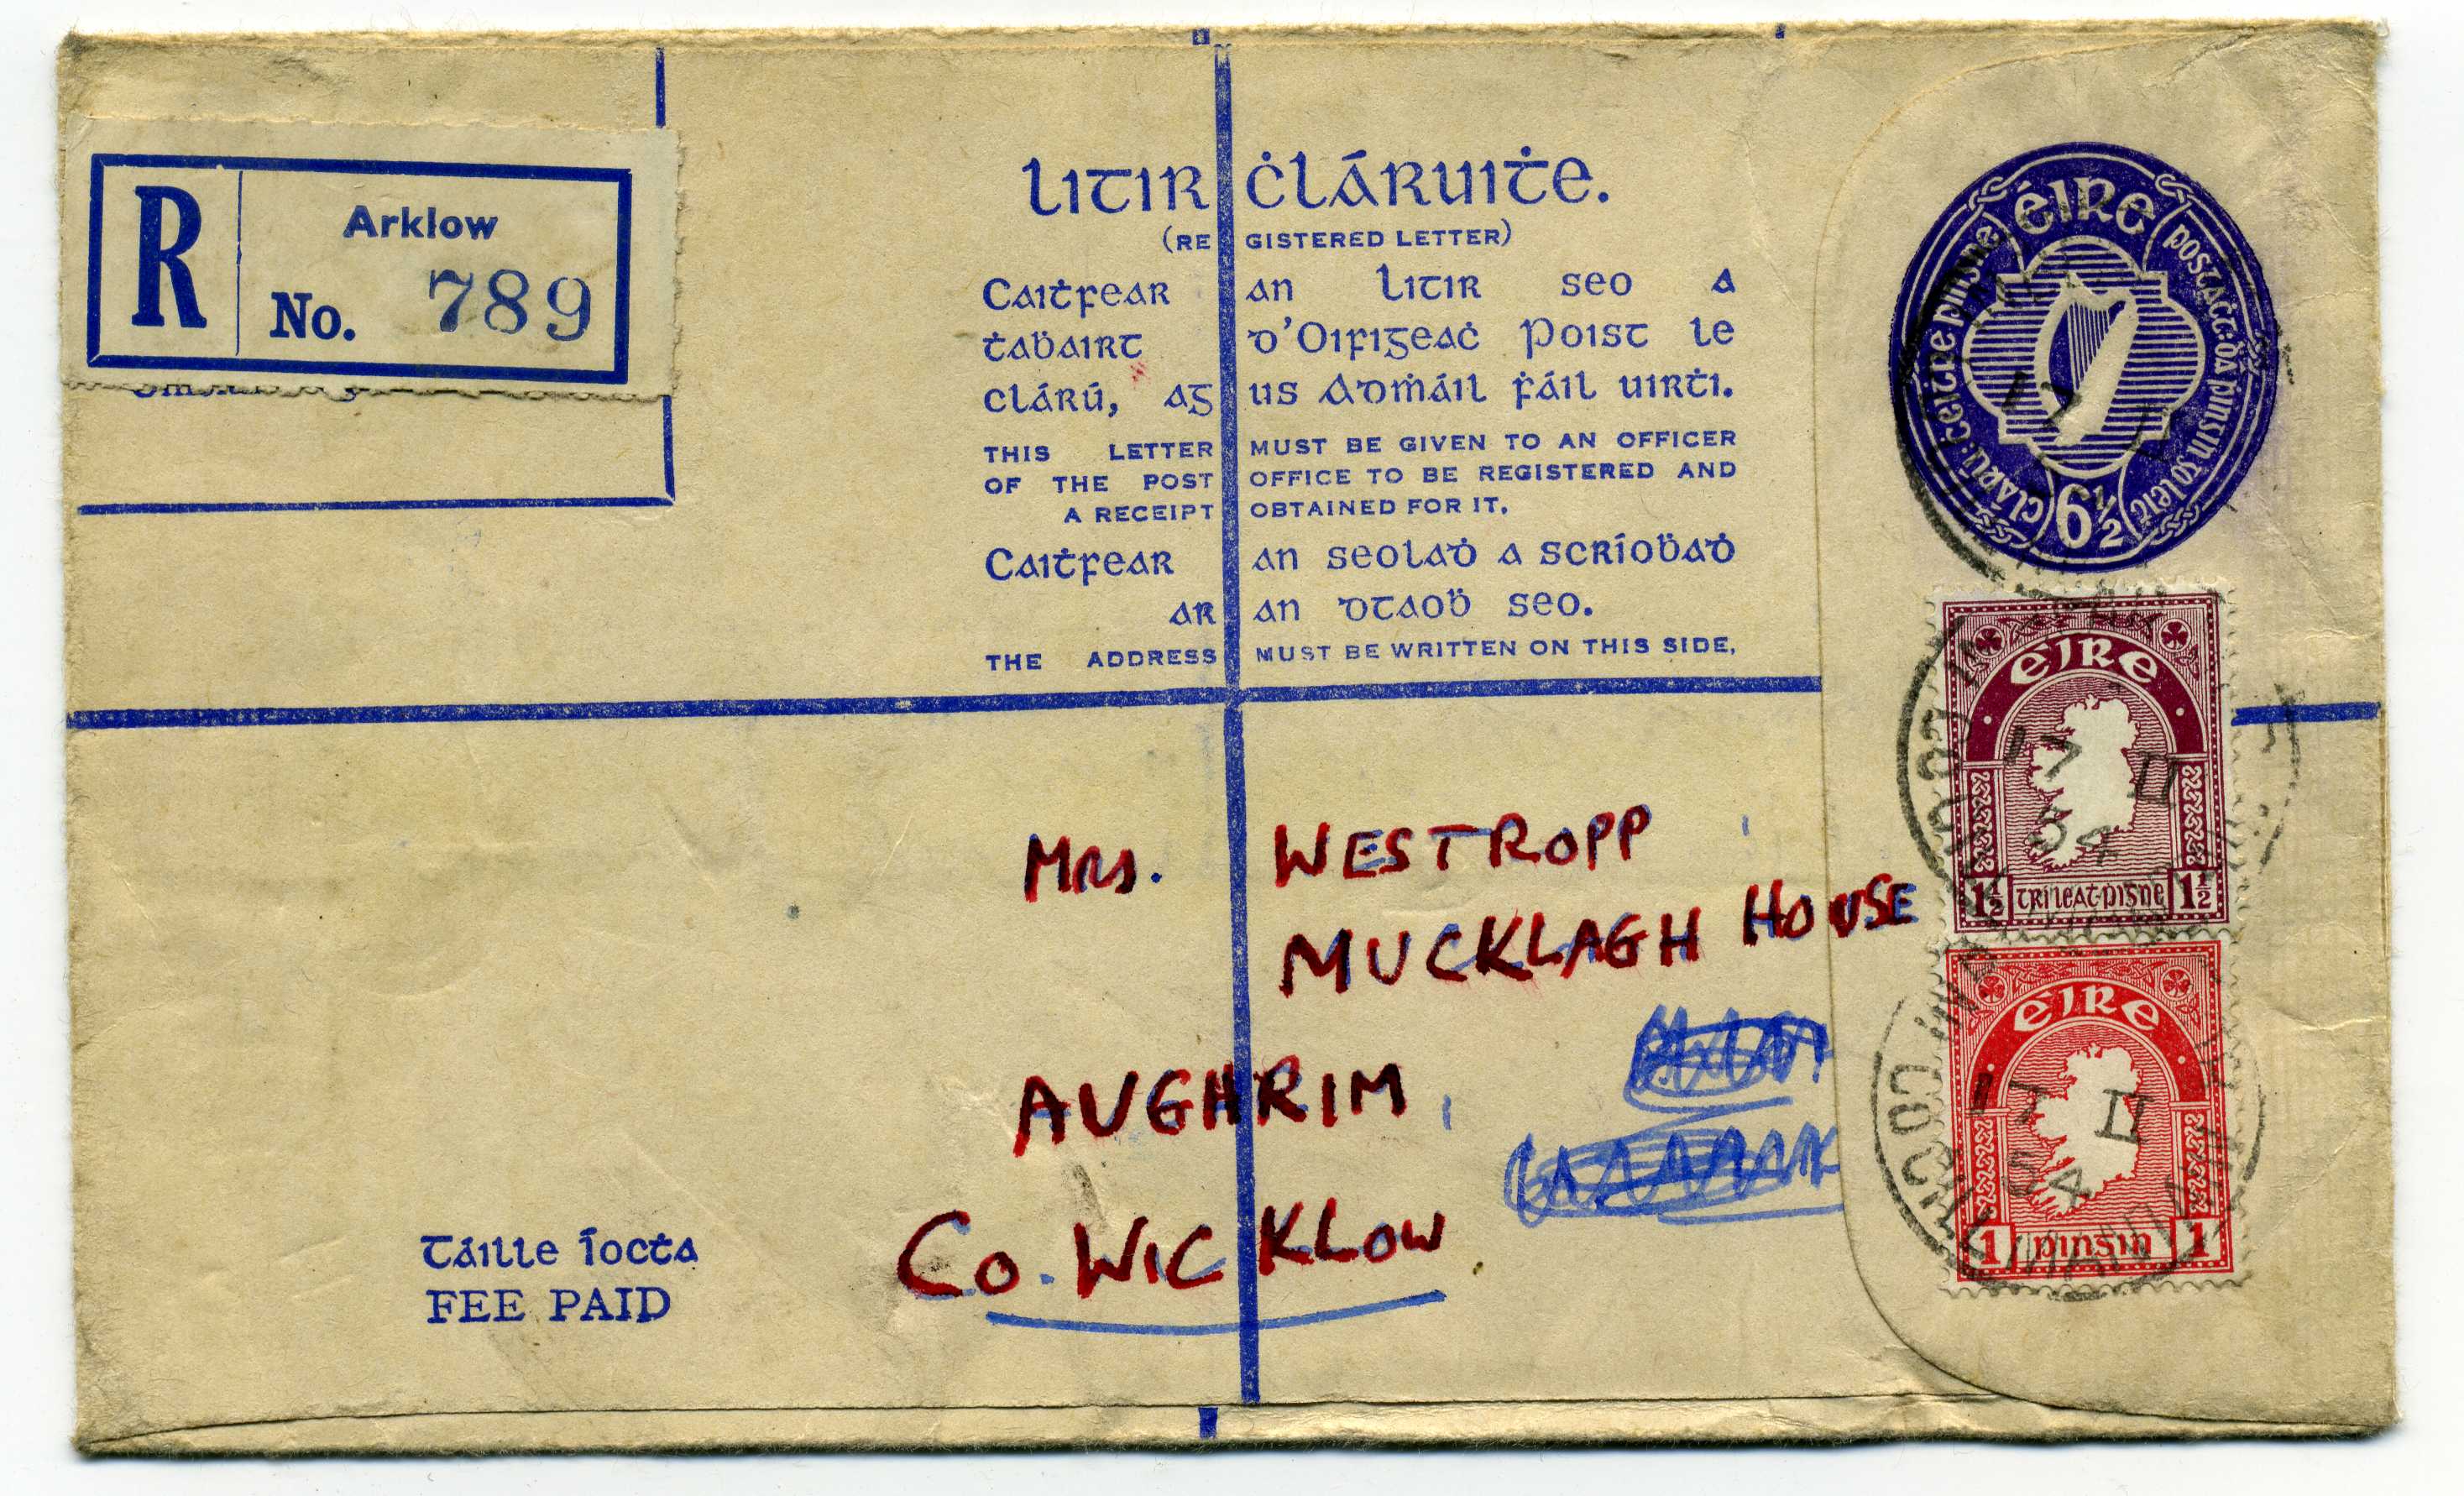 R
Arklow
No. 789
Litir Ċláruiṫe.
(REGISTERED LETTER)
Caiṫfear an litir seo a
ṫaḃairt d'Oifigeaċ Poist le
clárú, agus Admháil ḟáil uirṫi.
THIS LETTER MUST BE GIVEN TO AN OFFICER
OF THE POST OFFICE TO BE REGISTERED AND
A RECEIPT OBTAINED FOR IT.
Caiṫfear an seolaḋ a scríoḃaḋ
ar an dtaoḃ seo.
THE ADDRESS MUST BE WRITTEN ON THIS SIDE.
éire
postaċt: dá pinsin go leiṫ
cláru: ceiṫre pinsne
6½
éire
1½ trí leaṫ-pisne 1½
17 II
54
éire
1 pinsin 1
17 II
54
Mrs. WESTROPP
MUCKLAGH HOUSE
AUGHRIM,
Co. WICKLOW.
Táille íocṫa
FEE PAID